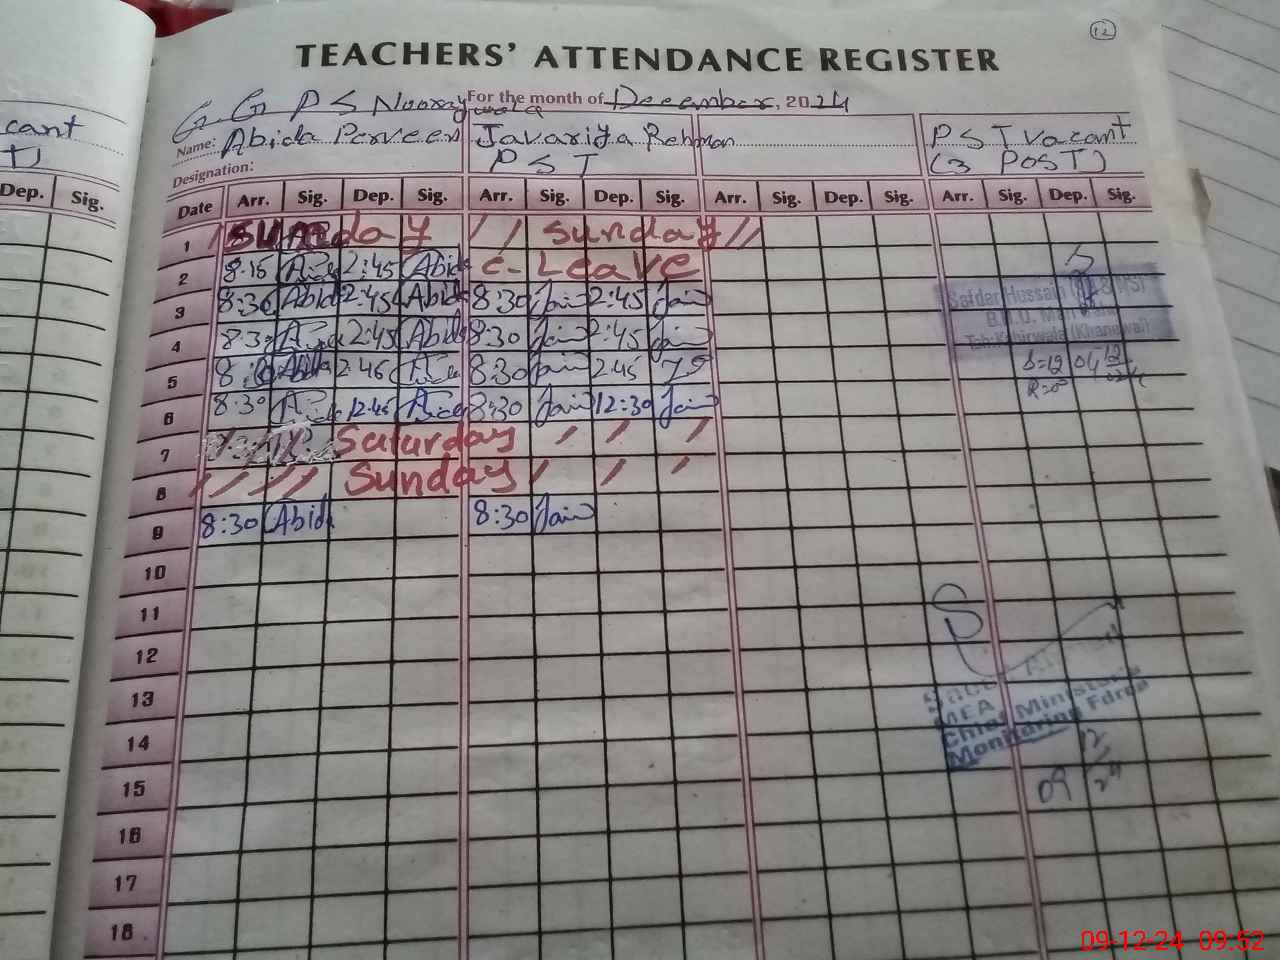 12
TEACHERS' ATTENDANCE REGISTER
G G P S For the month of December, 2024
cant
Name: Abida Perveen Javariya Rehman PST Vacant
T)
Designation: PST (3 POST)
Dep. Sig.
Date Arr. Sig. Dep. Sig. Arr. Sig. Dep. Sig. Arr. Sig. Dep. Sig. Arr. Sig. Dep. Sig.
1 Sunday Sunday
2 8:15 2:45 Abid C- Leave
3 8:30 Abid 2:45 Abid 8:30 Jain 2:45 Jain
4 8:30 2:45 Abid 8:30 Jain 2:45 Jain
5 Abid 2:45 8:30 Jain 2:45
6 8:30 12:45 8:30 Jain 12:30 Jain
7 Saturday
8 Sunday
9 8:30 Abid 8:30 Jain
10
11
12
13
14
15
16
17
18
Safdar Hussain
Teh: Kabirwala (Khanewal)
S=12 04 12
MEA
Chief Minister's
Monitoring Force
09 12
24
09-12-24 09:52